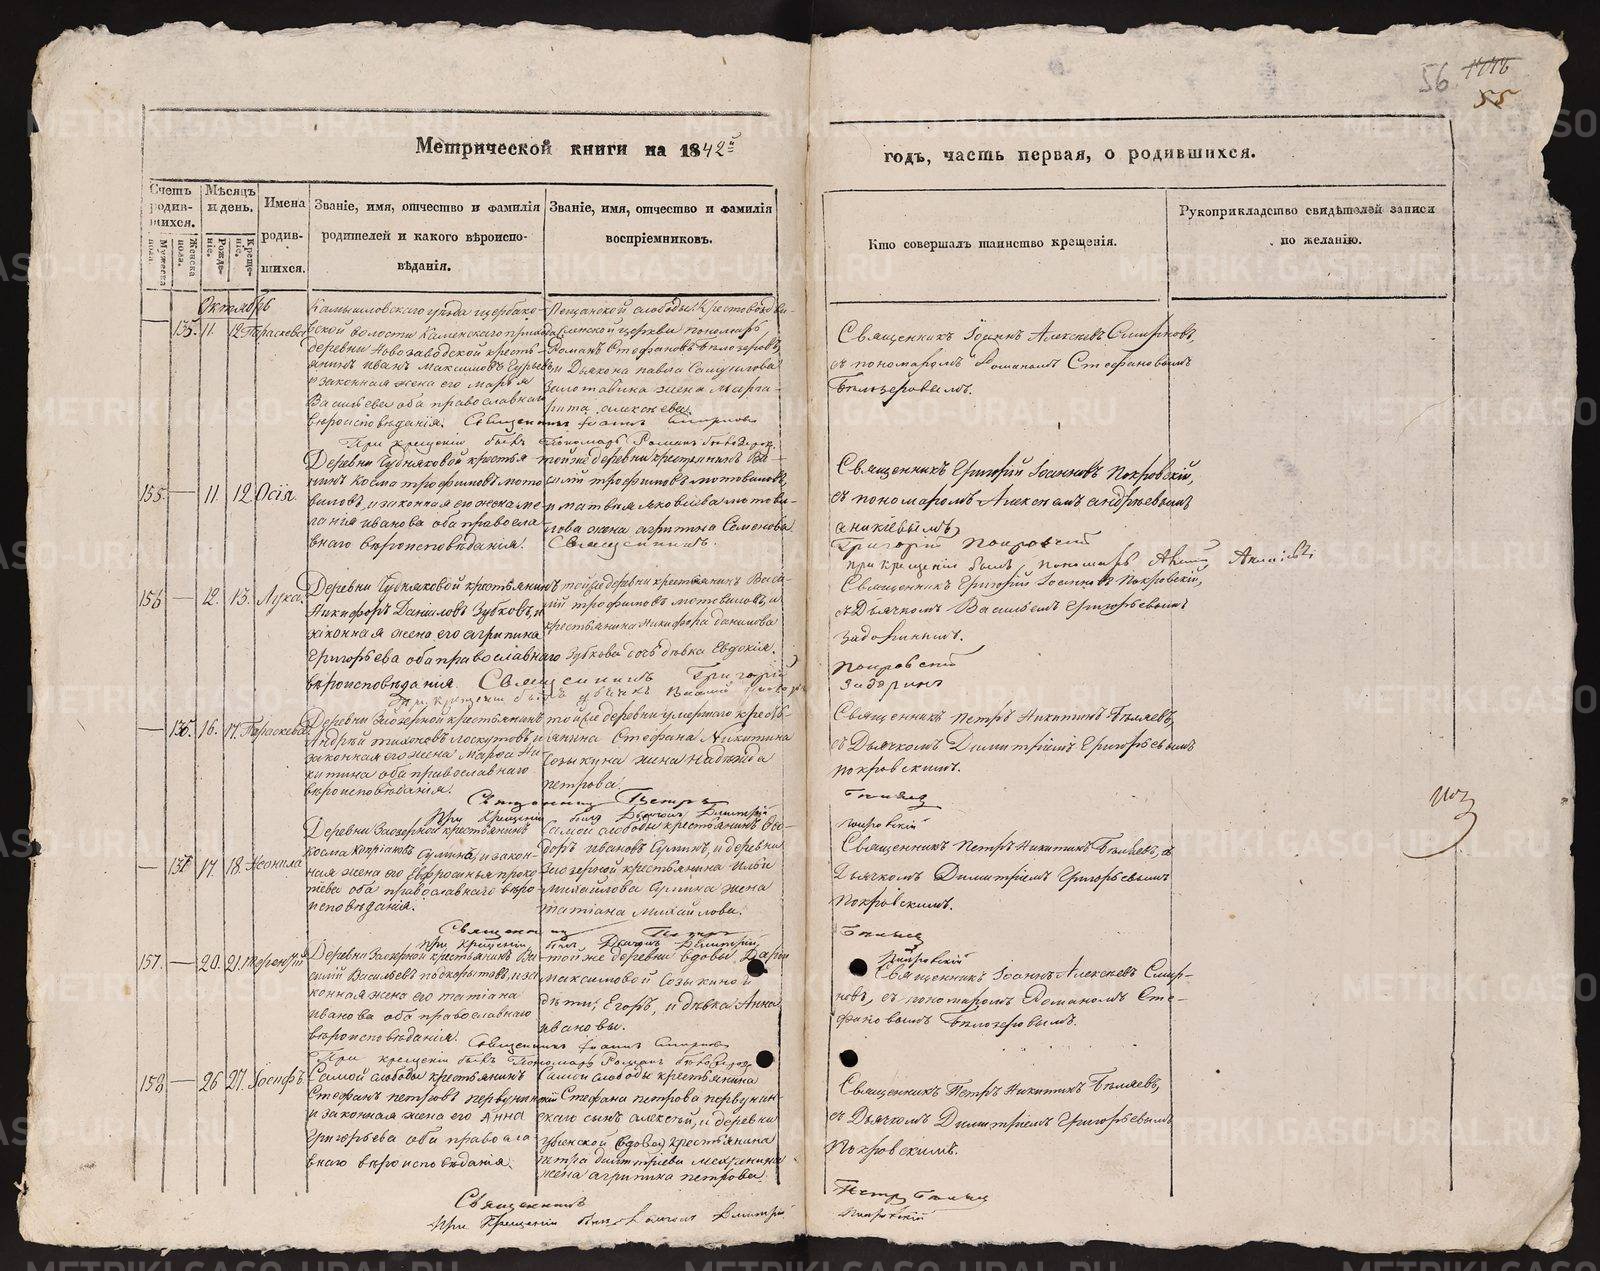 56 55
Метрической книги на 1842й
годъ, часть первая, о родившихся.
Счетъ родившихся.
Мѣсяцъ и день.
Имена родившихся.
Званіе, имя, отчество и фамилія родителей и какого вѣроисповѣданія.
Званіе, имя, отчество и фамилія воспріемниковъ.
Кто совершалъ таинство крещенія.
Рукоприкладство свидѣтелей записи по желанію.
Мужеска пола.
Женска пола.
Рожденіе.
Крещеніе.
Октябрь
135. 11. 12. Параскева
Камышловскаго уѣзда Щербако-
вской волости Каменскаго прихода
деревни Новозаводской кресть-
янинъ Иванъ Максимовъ
и законная жена его Марья
Васильева оба православнаго
вѣроисповѣданія. Священникъ Іоаннъ Смирновъ
При крещеніи былъ Пономарь Романъ Бѣлозеровъ
Пещанской слободы Крестовоздви-
женской церкви пономарь
Романъ Стефановъ Бѣлозеровъ,
и Дьякона Павла Самуилова
Золотавина жена Марга-
рита Алексѣева.
Священникъ Іоаннъ Алексѣевъ Смирновъ,
съ пономаремъ Романомъ Стефановымъ
Бѣлозеровымъ.
155. — 11. 12. Осія.
Деревни Чудняковой кресть-
янинъ Косма Трофимовъ Мото-
виловъ, и законная его жена Ме-
ланія Иванова оба правосла-
внаго вѣроисповѣданія.
той же деревни крестьянинъ Ва-
силій Трофимовъ Мотовиловъ,
и Матвѣя Яковлева Мотови-
лова жена Агрипина Семенова
Священникъ
Священникъ Григорій Іоанновъ Покровскій,
съ пономаремъ Алексѣемъ Андрѣевымъ
Аникіевымъ
Григорій Покровскій
при крещеніи былъ, пономарь
156 — 12. 13. Лука.
Деревни Чудняковой крестьянинъ
Никифоръ Даниловъ Зубковъ, и
законная жена его Агрипина
Григорьева оба православнаго
вѣроисповѣданія. Священникъ Григорій
той же деревни крестьянинъ Васи-
лій Трофимовъ Мотовиловъ, и
крестьянина Никифора Данилова
Зубкова дочь дѣвка Евдокія.
Священникъ Григорій Іоанновъ Покровскій,
съ Дьячкомъ Васильемъ Григорьевымъ
Задоринымъ.
Покровскій
Задоринъ
— 136. 16. 17. Параскева
Деревни Заозерной крестьянинъ
Андрей Тихоновъ Лоскутовъ, и
законная его жена Марфа Ни-
китина оба православнаго
вѣроисповѣданія.
Священникъ Петръ
При крещеніи былъ Дьячекъ Димитрій
той же деревни умершаго кресть-
янина Стефана Никитина
Созыкина жена Надежда
Петрова
Священникъ Петръ Никитинъ Бѣляевъ,
съ Дьячкомъ Димитріемъ Григорьевымъ
Покровскимъ.
Бѣляевъ
Покровскій
— 137 17. 18. Неонила
Деревни Заозерной крестьянинъ
Косма Капріановъ Сулинъ, и закон-
ная жена его Ефросинья Проко-
пьева оба православнаго вѣро-
исповѣданія.
Священникъ Петръ
При крещеніи былъ Дьячекъ Димитрій
Самой слободы крестьянинъ Ѳео-
доръ Ивановъ Сулинъ, и деревни
Заозерной крестьянина Ильи
Михайлова Сулина жена
Татіана Михайлова.
Священникъ Петръ Никитинъ Бѣляевъ, съ
Дьячкомъ Димитріемъ Григорьевымъ
Покровскимъ.
Бѣляевъ
Покровскій
157. — 20. 21. Терентій
Деревни Заозерной крестьянинъ Ва-
силій Васильевъ Подкорытовъ, и за-
конная жена его Татіана
Иванова оба православнаго
вѣроисповѣданія. Священникъ Іоаннъ Смирновъ
При крещеніи былъ Пономарь Романъ Бѣлозеровъ
той же деревни вдовы Дарьи
Максимовой Созыкиной
дѣти, Егоръ, и дѣвка Анна
Ивановы.
Священникъ Іоаннъ Алексѣевъ Смир-
новъ, съ пономаремъ Романомъ Сте-
фановымъ Бѣлозеровымъ.
158 — 26 27. Іосифъ
Самой слободы крестьянинъ
Стефанъ Петровъ Первунинскій
и законная жена его Анна
Григорьева оба правосла-
внаго вѣроисповѣданія.
Священникъ
При крещеніи былъ Дьячекъ Димитрій
Самой слободы крестьянина
Стефана Петрова Первунин-
скаго сынъ Алексѣй, и деревни
вдова крестьянина
Петра Димитріева
жена Агрипина Петрова.
Священникъ Петръ Никитинъ Бѣляевъ,
съ Дьячкомъ Димитріемъ Григорьевымъ
Покровскимъ.
Петръ Бѣляевъ
Покровскій
METRIKI.GASO-URAL.RU